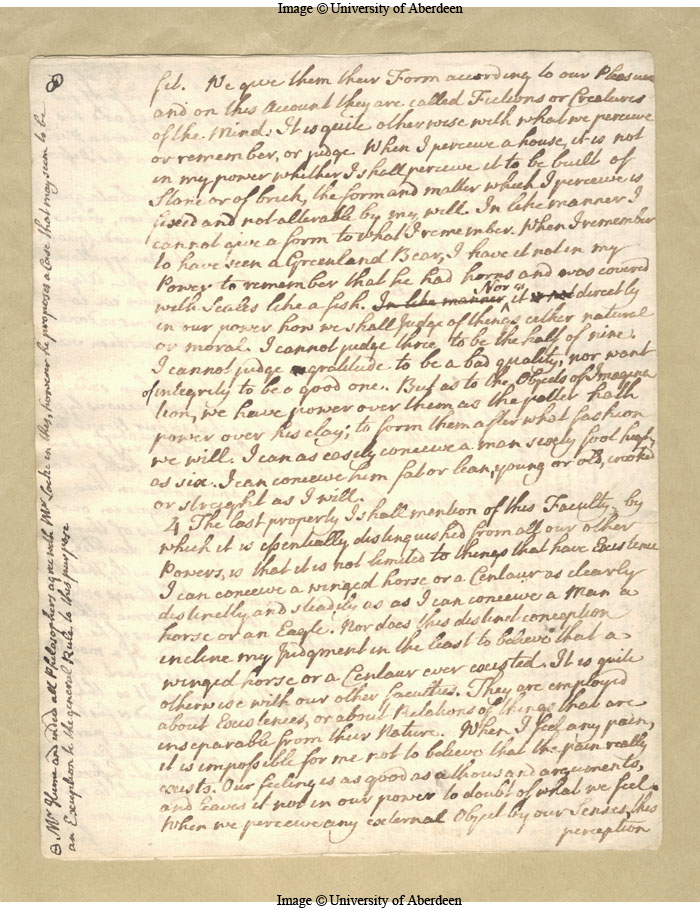 Image © University of Aberdeen
8
fit. We give them their Form according to our Pleasure
and on this Account they are called Fictions or Creatures
of the Mind. It is quite otherwise with what we perceive
or remember, or judge. When I perceive a house, it is not
in my power whether I shall perceive it to be built of
Stone or of brick, the form and matter which I perceive is
fixed and not alterable by my will. In like manner I
cannot give a form to what I remember. When I remember
to have seen a Greenland Bear, I have it not in my
Power to remember that he had horns and was covered
with Scales like a fish. In like manner, Nor is it directly
in our power how we shall Judge of things either natural
or moral. I cannot judge three to be the half of nine.
I cannot judge gratitude to be a bad quality, nor want
of integrity to be a good one. But as to the Objects of Imagina
tion, we have power over them as the potter hath
power over his clay; to form them after what fashion
we will. I can as easily conceive a man sixty foot high,
as six. I can conceive him fat or lean, young or old, crooked
or streight as I will.
4 The last property I shall mention of this Faculty, by
which it is essentially distinguished from all our other
Powers, is that it is not limited to things that have Existence
I can conceive a winged horse or a Centaur as clearly
distinctly and steadily as as I can conceive a Man a
horse or an Eagle. Nor does this distinct conception
incline my Judgment in the least to believe that a
winged horse or a Centaur ever existed. It is quite
otherwise with our other faculties. They are employed
about Existences, or about Relations of things that are
inseparable from their Nature. When I feel any pain,
it is impossible for me not to believe that the pain really
exists. Our feeling is as good as a thousand arguments,
and leaves it not in our power to doubt of what we feel.
When we perceive any external Object by our Senses, this
perception
Mr Hume and indeed all Philosophers agree with Mr Locke in this, however he proposes a Case that may seem to be
an Exception to the general Rule to this purpose
Image © University of Aberdeen